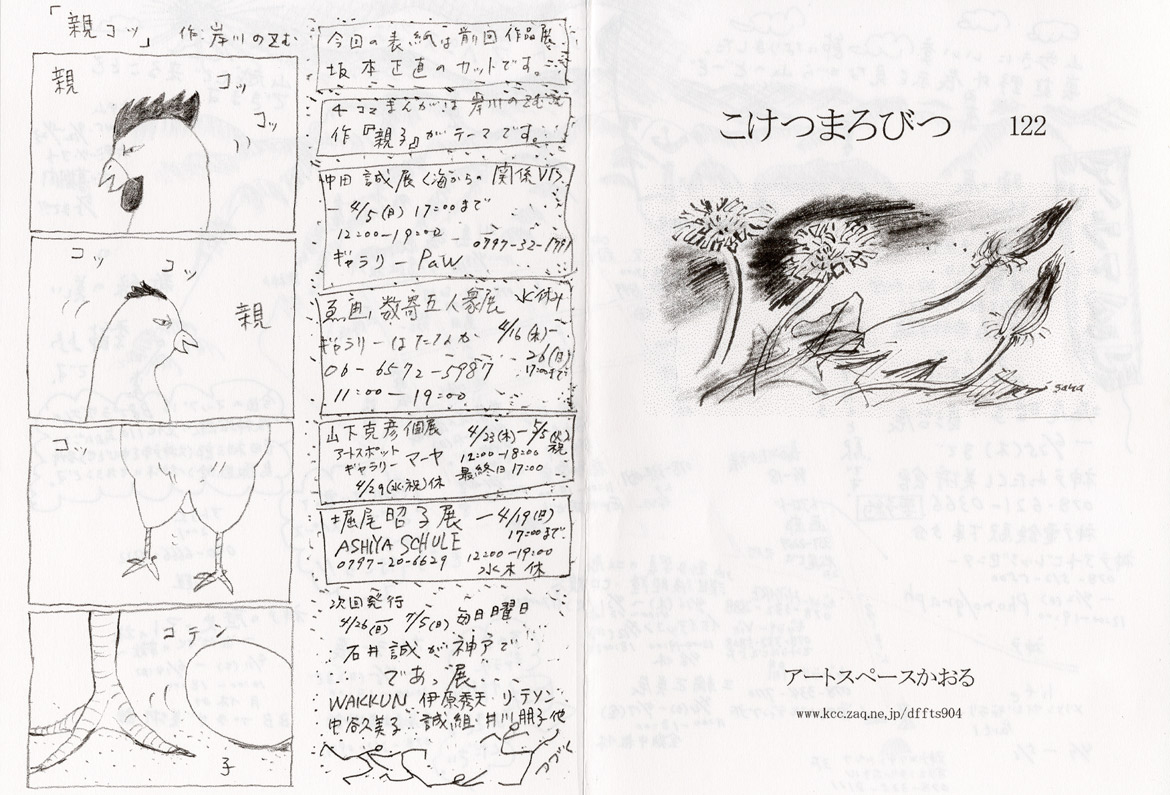 「親コッ」 作:岸川のぞむ
親
コッ
コッ
コッ
コッ
親
コッ
コテン
子
今回の表紙は前回作品展
坂本正直のカットです。
4コマまんがは岸川のぞむさん
作『親子』がテーマです。
仲田誠展〈海からの関係VTS
― 4/5(日) 17:00まで
12:00―19:00
0797-32-1791
ギャラリー Paw
数寄五人衆展 水休み
ギャラリー 4/16(木)―
26(日)
17:00まで
06-6572-5987
11:00―19:00
山下克彦個展 4/23(木)―5/5(火)祝
アートスポット
ギャラリー マーヤ 12:00―18:00
最終日17:00
4/29(水・祝)休
堀尾昭子展 ―4/19(日)
17:00まで
ASHIYA SCHULE
0797-20-6629 12:00―19:00
水木 休
次回発行
4/26(日) 7/5(日) 毎日曜日
石井誠が神戸で
であっ展
WAKKUN 伊原秀夫 リ・テソン
中谷久美子 誠組 井川朋子他
つづく
こけつまろびつ 122
sana
アートスペースかおる
www.kcc.zaq.ne.jp/dffts904